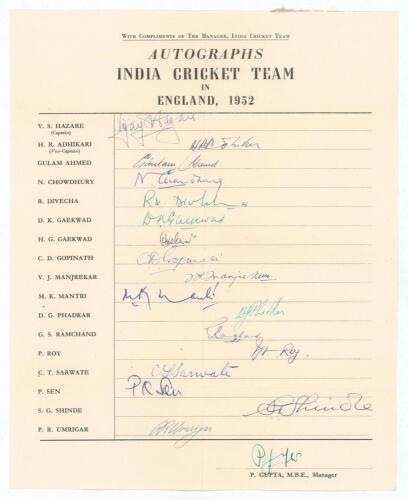 WITH COMPLIMENTS OF THE MANAGER, INDIA CRICKET TEAM
AUTOGRAPHS
INDIA CRICKET TEAM
IN
ENGLAND, 1952
V. S. HAZARE
(Captain)
Vijay Hazare
H. R. ADHIKARI
(Vice-Captain)
GULAM AHMED
Ghulam Ahmed
N. CHOWDHURY
N. Chowdhury
R. DIVECHA
R.V. Divecha
D. K. GAEKWAD
D.K. Gaekwad
H. G. GAEKWAD
C. D. GOPINATH
C.D. Gopinath
V. J. MANJREKAR
V.L. Manjrekar
M. K. MANTRI
M.K. Mantri
D. G. PHADKAR
G. S. RAMCHAND
P. ROY
P. Roy.
C. T. SARWATE
C T Sarwate
P. SEN
P.K. Sen
S. G. SHINDE
S.G. Shinde
P. R. UMRIGAR
P.R. Umrigar
P. GUPTA, M.B.E., Manager